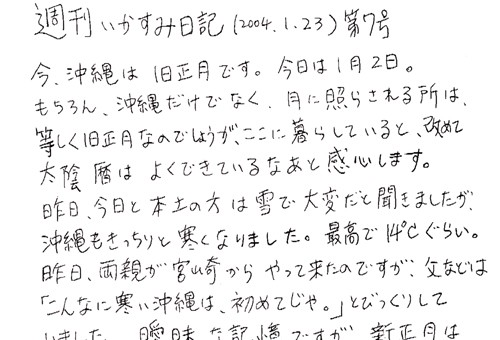 週刊いかすみ日記(2004.1.23)第7号
今、沖縄は旧正月です。今日は1月2日。
もちろん、沖縄だけでなく、月に照らされる所は、
等しく旧正月なのでしょうが、ここに暮らしていると、改めて
太陰暦はよくできているなあと感心します。
昨日、今日と本土の方は雪で大変だと聞きましたが、
沖縄もきっちりと寒くなりました。最高で14℃ぐらい。
昨日、両親が宮崎からやって来たのですが、父などは
「こんなに寒い沖縄は、初めてじゃ。」とびっくりして
いました。曖昧な記憶ですが、新正月は